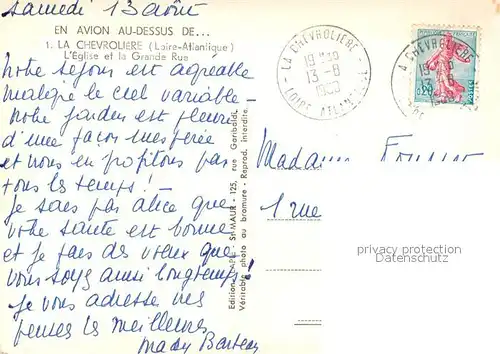 Samedi 13 août
EN AVION AU-DESSUS DE...
1. LA CHEVROLIERE (Loire-Atlantique)
L'Église et la Grande Rue
notre séjour est agréable
malgré le ciel variable -
notre jardin est fleuri
d'une façon inespérée
et nous en profitons pas
tous les temps! -
je sais par alice que
votre santé est bonne
et je fais des vœux que
vous soyez aussi longtemps!
je vous adresse mes
pensées les meilleures
Mady
Editions LAPIE - St-MAUR - 125, rue Garibaldi.
Véritable photo au bromure - Reprod. interdite.
LA CHEVROLIERE
13-8
LOIRE ATLANTIQUE
A CHEVROLIERE
0,20
Madame
1 rue
privacy protection
Datenschutz